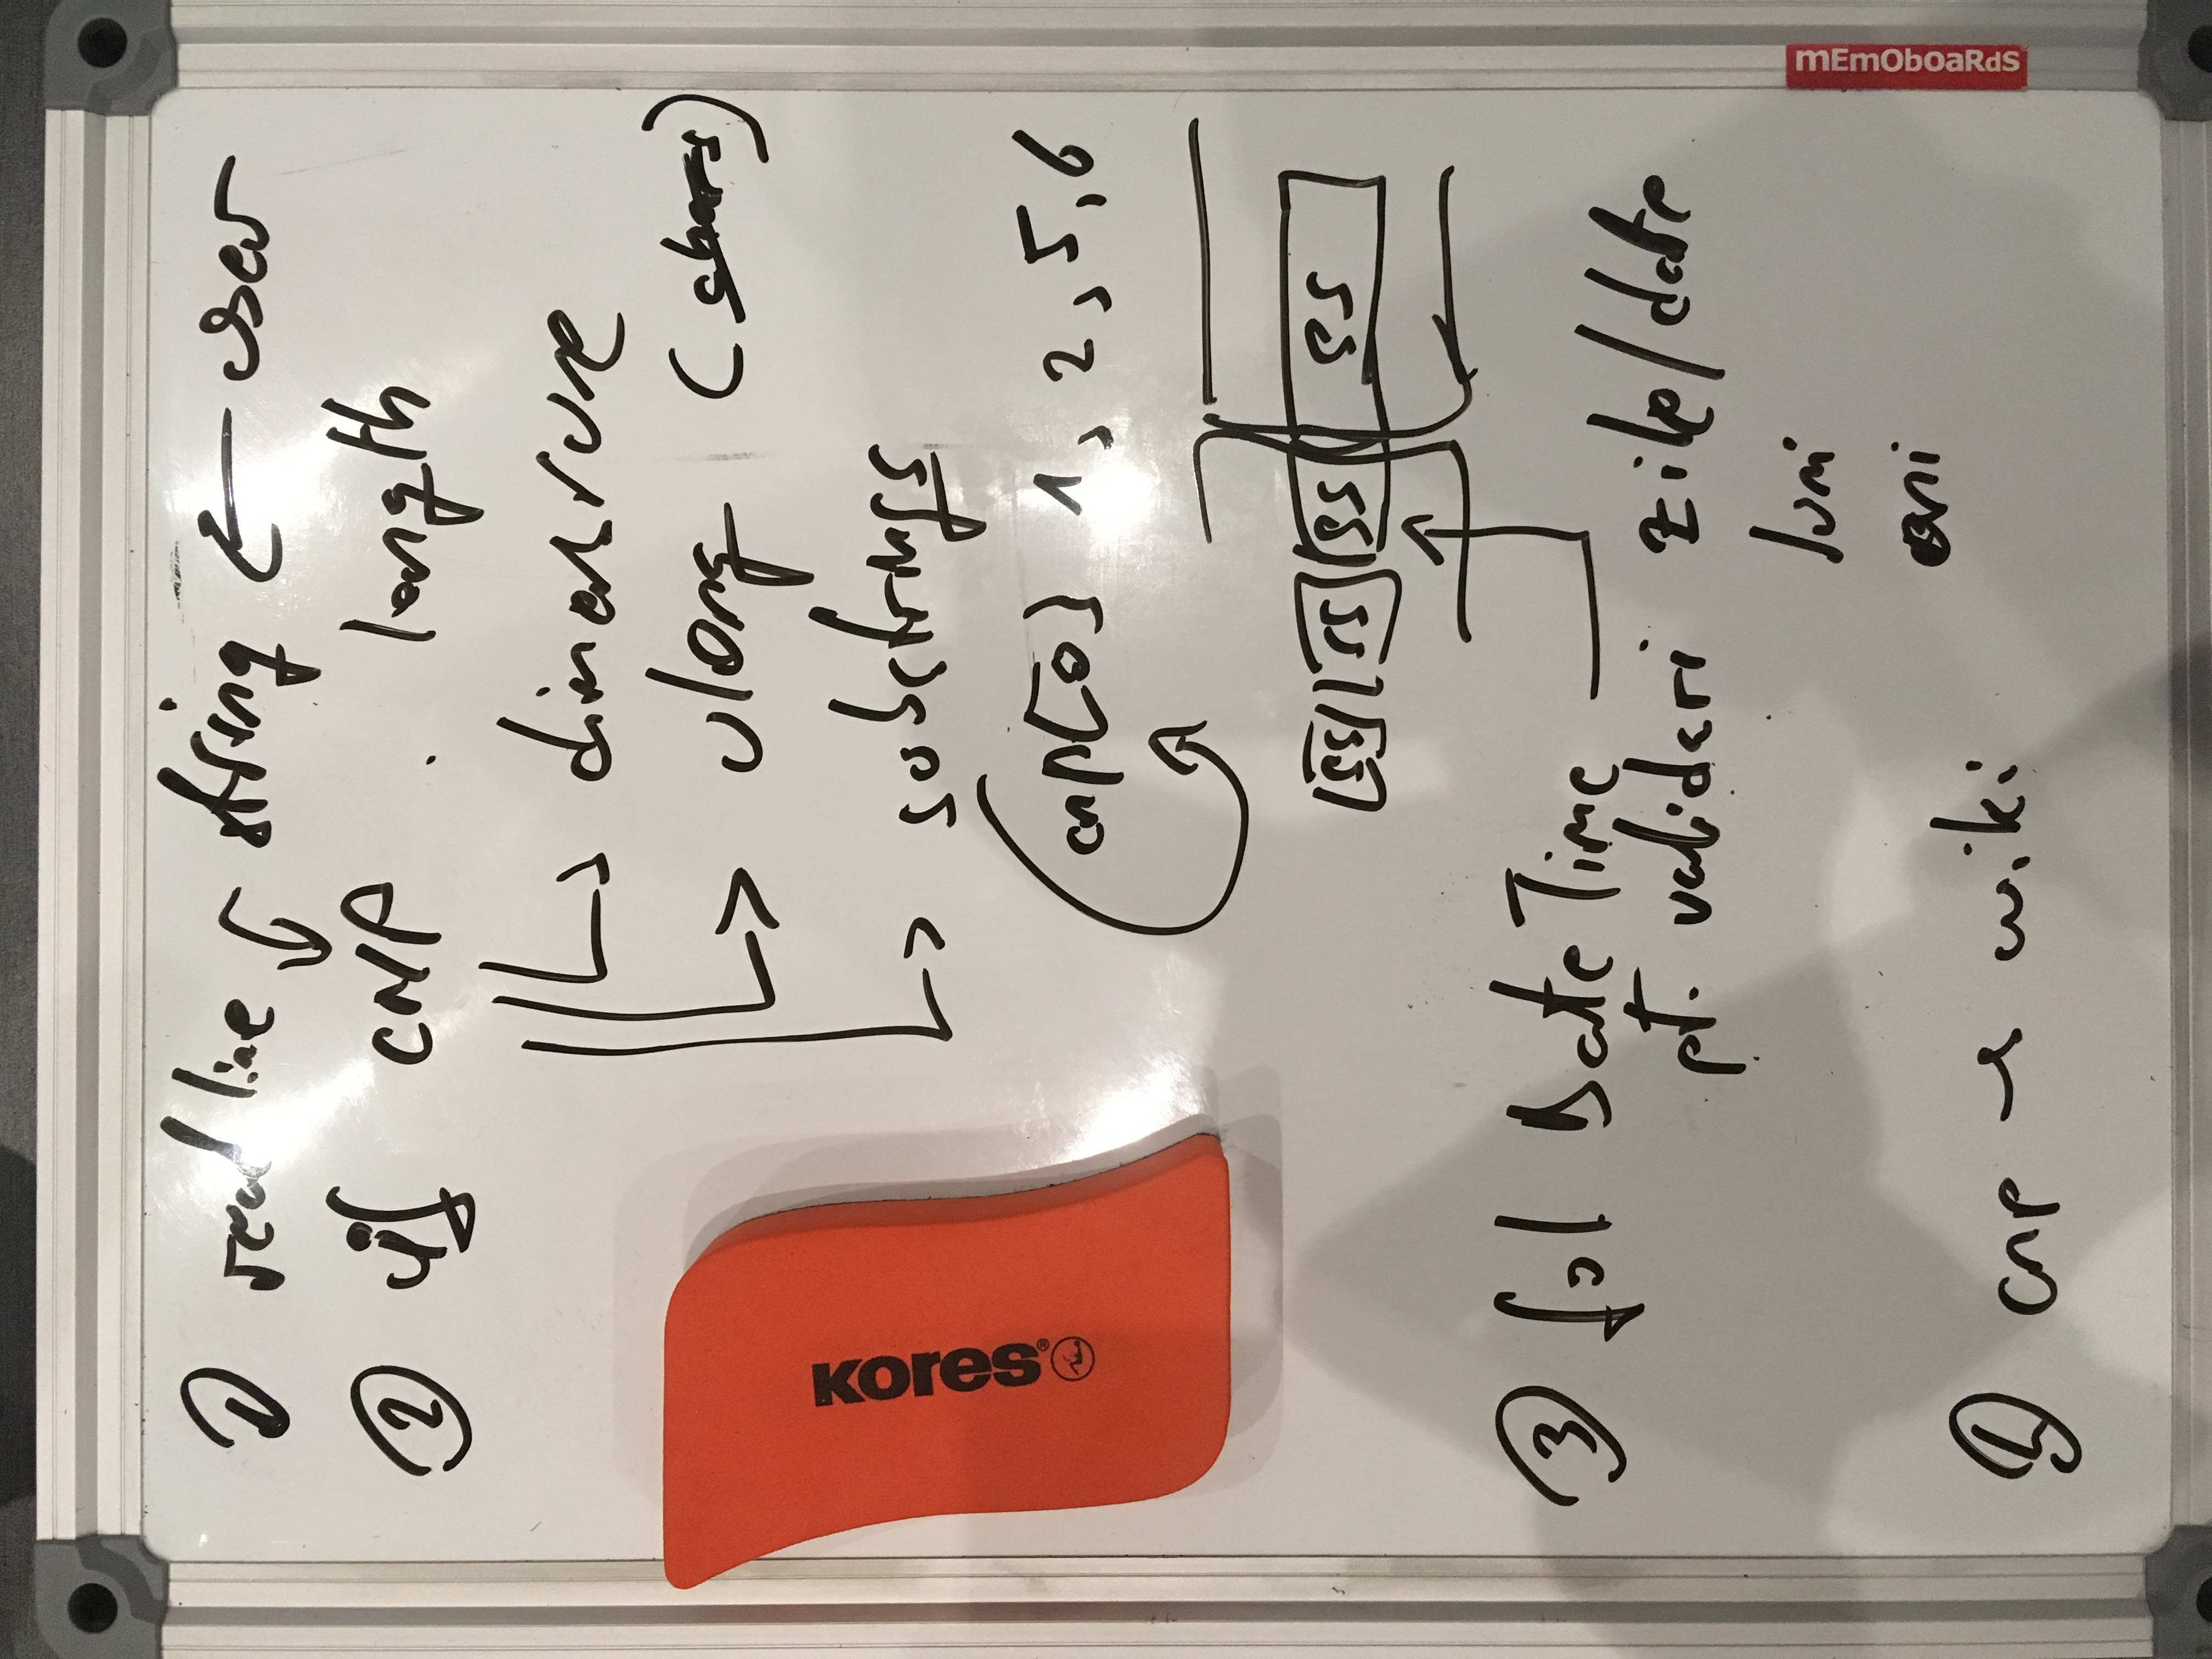 ① read line string ← user
② if CNP . length
↳ dimensiune
↳ ulong (chars)
↳ substrings
cnp[0] 1, 2, 5, 6
ss ss ss ss
③ fol DateTime
pt. validari zile/date
luni
ani
cnp → wiki
kores
mEmObOaRdS